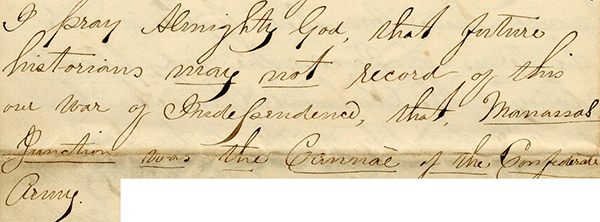 I pray Almighty God, that future
historians may not record of this
our war of Independence, that, Manassas
Junction was the Cannae of the Confederate
Army.